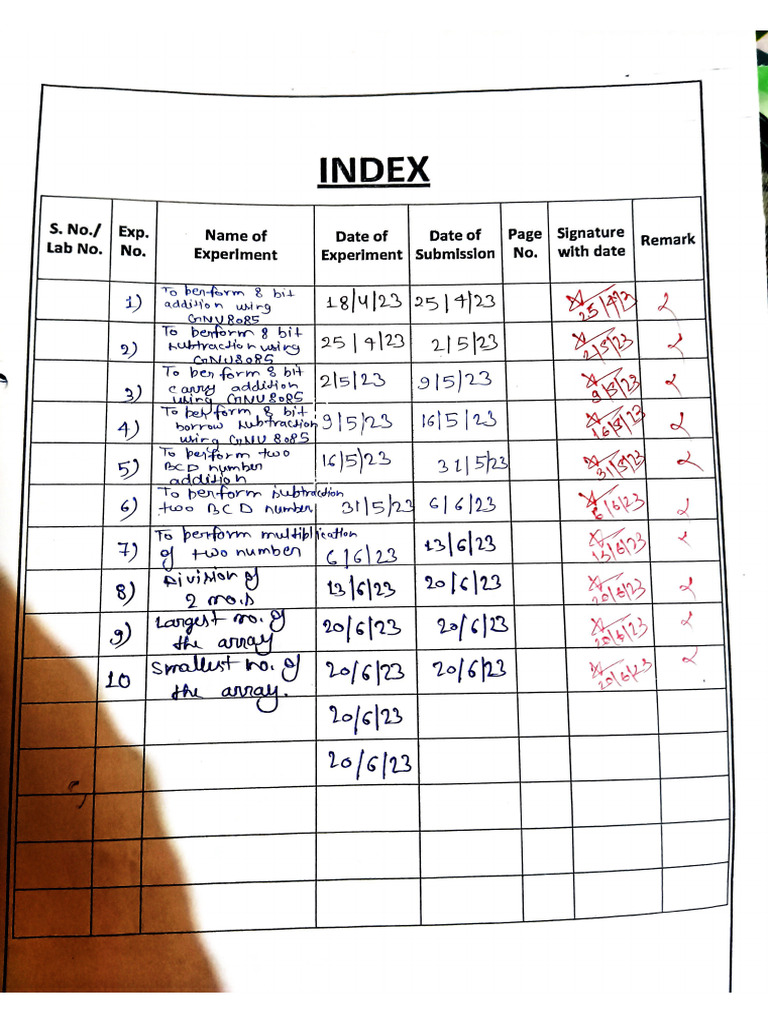 INDEX
S. No./ Lab No. Exp. No. Name of Experiment Date of Experiment Date of Submission Page No. Signature with date Remark
1) To perform 8 bit
addition using
GNU8085
18/4/23 25/4/23 25/4/23
2) To perform 8 bit
subtraction using
GNU8085
25/4/23 2/5/23 2/5/23
3) To perform 8 bit
carry addition
using GNU8085
2/5/23 9/5/23 9/5/23
4) To perform 8 bit
borrow subtraction
using GNU 8085
9/5/23 16/5/23 16/5/23
5) To perform two
BCD number
addition
16/5/23 31/5/23 31/5/23
6) To perform subtraction
two BCD number
31/5/23 6/6/23 6/6/23
7) To perform multiplication
of two number
6/6/23 13/6/23 13/6/23
8) Division of
2 no.s
13/6/23 20/6/23 20/6/23
9) Largest no. of
the array
20/6/23 20/6/23 20/6/23
10 Smallest no. of
the array.
20/6/23 20/6/23 20/6/23
20/6/23
20/6/23